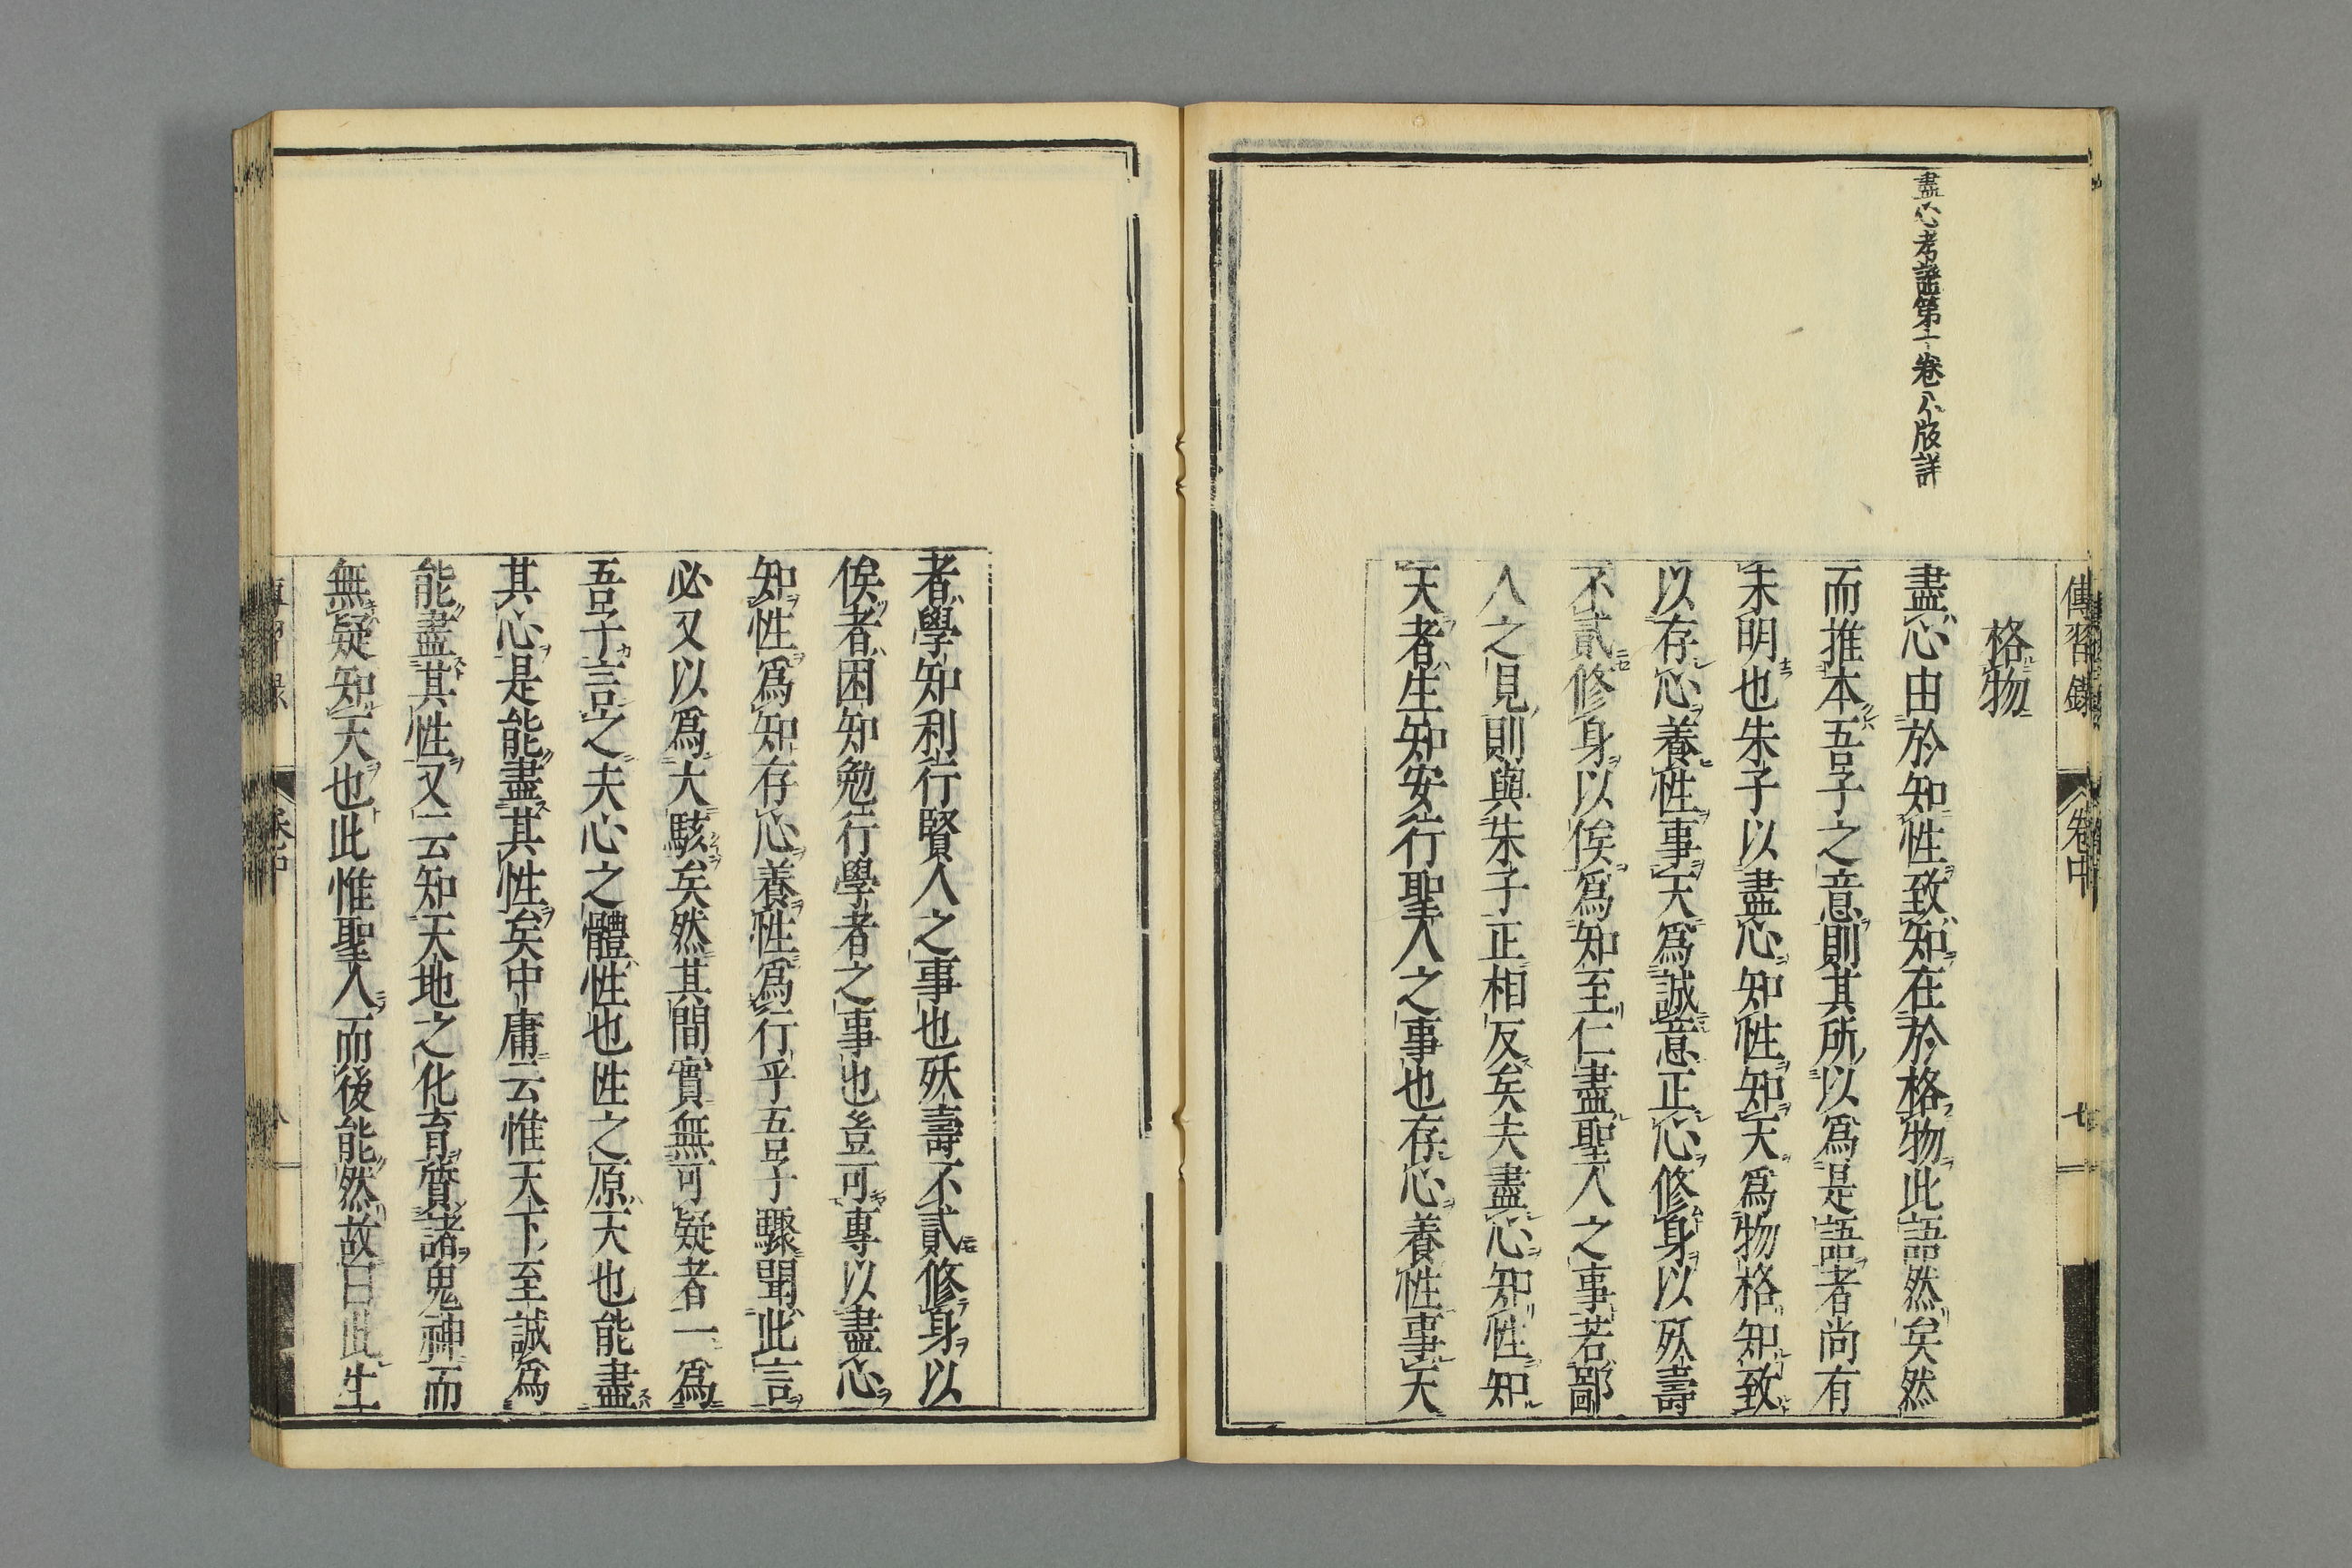 傳習錄　卷中　七
盡心考證第一卷八版詳
格物
盡心由於知性致知在於格物此語然矣然
而推本吾子之意則其所以爲是語者尚有
未明也朱子以盡心知性知天爲物格知致
以存心養性事天爲誠意正心修身以殀壽
不貳修身以俟爲知至仁盡聖人之事若鄙
人之見則與朱子正相反矣夫盡心知性知
天者生知安行聖人之事也存心養性事天
者學知利行賢人之事也殀壽不貳修身以
俟者困知勉行學者之事也豈可專以盡心
知性爲知存心養性爲行乎吾子驟聞此言
必又以爲大駭矣然其間實無可疑者一爲
吾子言之夫心之體性也性之原天也能盡
其心是能盡其性矣中庸云惟天下至誠爲
能盡其性又云知天地之化育質諸鬼神而
無疑知天也此惟聖人而後能然故曰此生
卷中　八